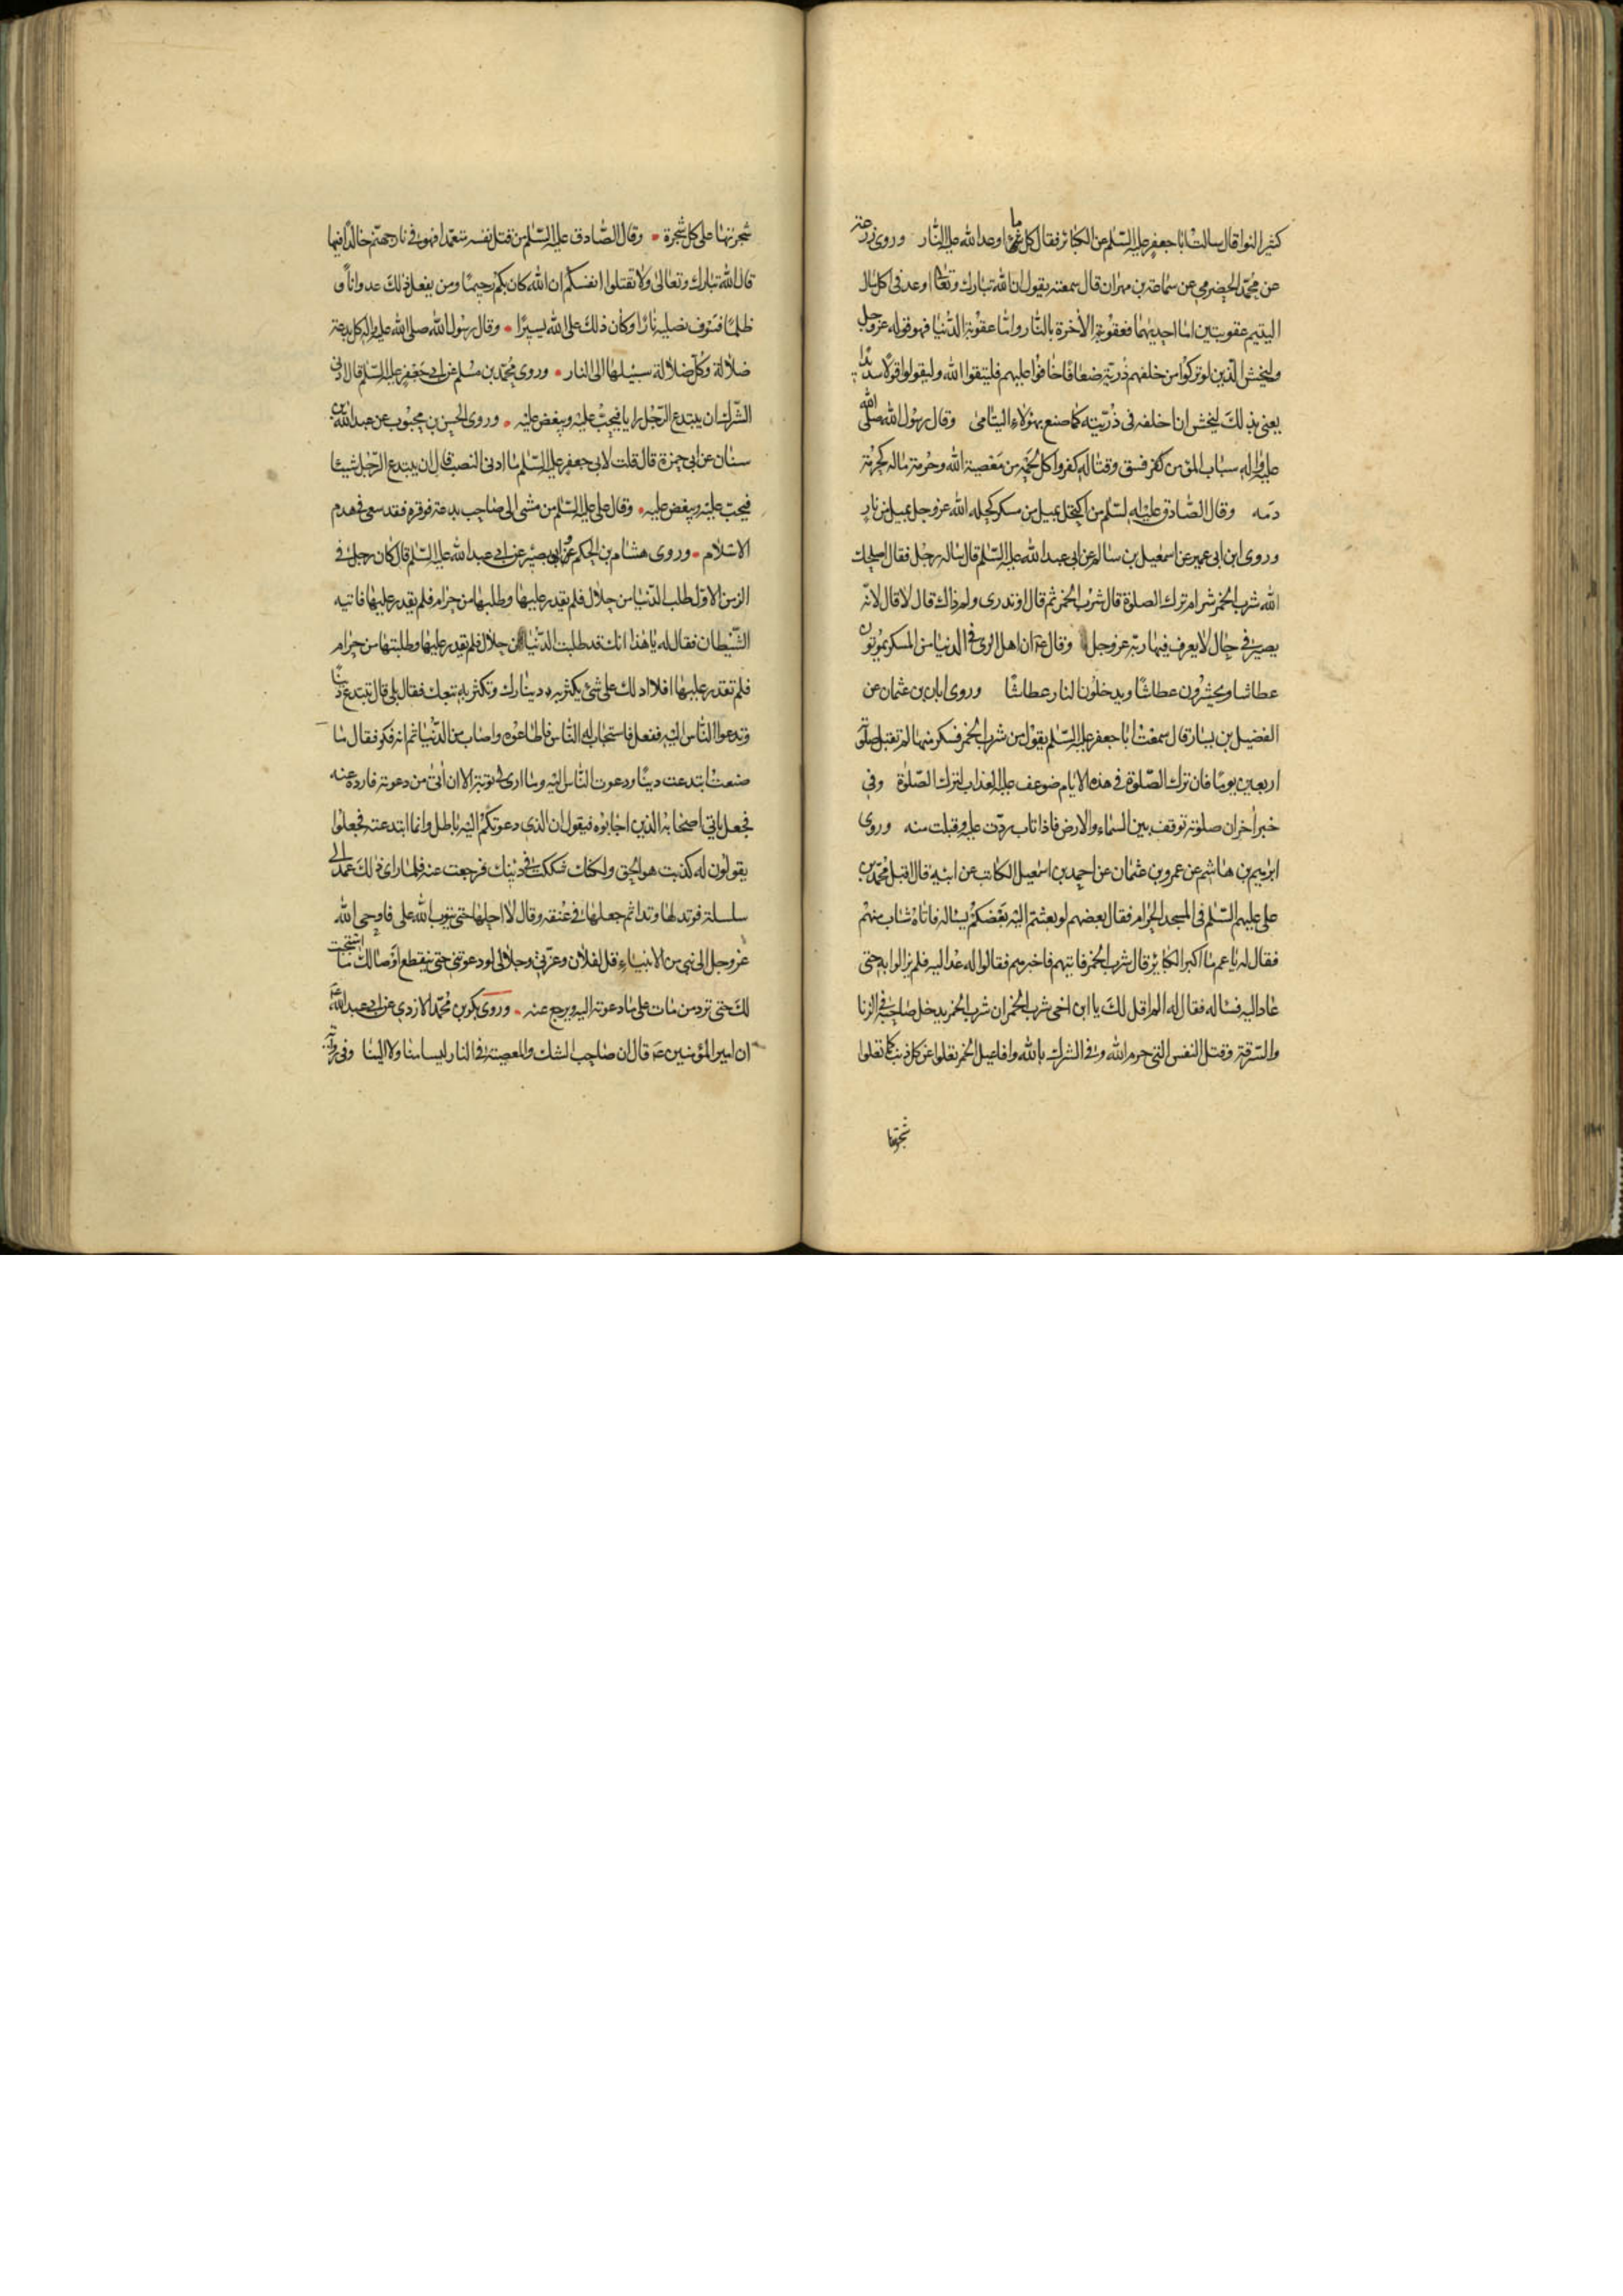 كثير النوا قال سالت ابا جعفر عليه السلم عن الكبائر فقال كل ما اوعد الله عليه النار وروى زرعة
عن محمد الحضرمي عن سماعة بن مهران قال سمعته يقول ان الله تبارك وتعالى اوعد فى اكل مال
اليتيم عقوبتين اما احديهما فعقوبة الاخرة بالنار واما عقوبة الدنيا فهو قوله عز وجل
وليخش الذين لو تركوا من خلفهم ذرية ضعافا خافوا عليهم فليتقوا الله وليقولوا قولا سديدا
يعنى بذلك ليخش ان اخلفه فى ذريته كما صنع بهؤلاء اليتامى وقال رسول الله صلى الله
عليه واله سباب المؤمن كفر فسق وقتاله كفر واكل لحمه من معصية الله وحرمة ماله كحرمة
دمه وقال الصادق عليه السلم من اكتحل بميل من مسكر كحله الله عز وجل بميل من نار
وروى ابن ابى عمير عن اسمعيل بن سالم عن ابى عبد الله عليه السلم قال ساله رجل فقال اصلحك
الله شرب الخمر شر ام ترك الصلوة قال شرب الخمر ثم قال اوتدرى ولم ذاك قال لا قال لانه
يصير فى حال لا يعرف فيها ربه عز وجل وقال ع ان اهل الرى فى الدنيا من المسكر يموتون
عطاشا ويحشرون عطاشا ويدخلون النار عطاشا وروى ابان بن عثمان عن
الفضيل بن يسار قال سمعت ابا جعفر عليه السلم يقول من شرب الخمر فسكر منها لم تقبل صلوته
اربعين يوما فان ترك الصلوة فى هذه الايام ضوعف عليه العذاب لترك الصلوة وفى
خبر اخر ان صلوته توقف بين السماء والارض فاذا تاب ردت عليه وقبلت منه وروى
ابرهيم بن هاشم عن عمرو بن عثمان عن احمد بن اسمعيل الكاتب عن ابيه قال اقبل محمد بن
على عليهم السلم فى المسجد الحرام فقال بعضهم لو بعثتم اليه بعضكم يساله فاتاه شاب منهم
فقال له يا عم ما اكبر الكبائر قال شرب الخمر فاتيهم فاخبرهم فقالوا له عد اليه فلم يزالوا به حتى
عاد اليه فساله فقال له الم اقل لك يا ابن اخى شرب الخمر ان شرب الخمر يدخل صاحبه فى الزنا
والسرقة وقتل النفس التى حرم الله وفى الشرك بالله وافاعيل الخمر تعلوا عن كل ذنب كما تعلوا
شجرتها
شجرتها على كل شجرة وقال الصادق عليه السلم من قتل نفسه متعمدا فهو فى نار جهنم خالدا فيها
قال الله تبارك وتعالى ولا تقتلوا انفسكم ان الله كان بكم رحيما ومن يفعل ذلك عدوانا و
ظلما فسوف نصليه نارا وكان ذلك على الله يسيرا وقال رسول الله صلى الله عليه واله كل بدعة
ضلالة وكل ضلالة سبيلها الى النار وروى محمد بن مسلم عن ابى جعفر عليه السلم قال ادنى
الشرك ان يبتدع الرجل رايا فيحب عليه ويبغض عليه وروى الحسن بن محبوب عن عبد الله بن
سنان عن ابى حمزة قال قلت لابى جعفر عليه السلم ما ادنى النصب قال ان يبتدع الرجل شيئا
فيحب عليه ويبغض عليه وقال على عليه السلم من مشى الى صاحب بدعة فوقره فقد سعى فى هدم
الاسلام وروى هشام بن الحكم عن ابى بصير عن ابى عبد الله عليه السلم قال كان رجل فى
الزمن الاول طلب الدنيا من حلال فلم يقدر عليها وطلبها من حرام فلم يقدر عليها فاتيه
الشيطان فقال له يا هذا انك قد طلبت الدنيا من حلال فلم تقدر عليها وطلبتها من حرام
فلم تقدر عليها افلا ادلك على شئ يكثر به دينارك وتكثر به تبعك فقال بلى قال تبتدع دينا
وتدعوا الناس اليه ففعل فاستجاب له الناس فاطاعوه واصاب من الدنيا ثم انه فكر فقال ما
صنعت ابتدعت دينا ودعوت الناس اليه وما ارى لى توبة الا ان اتى من دعوته فارده عنه
فجعل ياتى اصحابه الذين اجابوه فيقول ان الذى دعوتكم اليه باطل وانما ابتدعته فجعلوا
يقولون له كذبت هو الحق ولكنك شككت فى دينك فرجعت عنه فلما راى ذلك عمد الى
سلسلة فوتد لها وتدا ثم جعلها فى عنقه وقال لا احلها حتى يتوب الله على فاوحى الله
عز وجل الى نبى من الانبياء قل لفلان وعزتى وجلالى لو دعوتنى حتى ينقطع اوصالك ما استجبت
لك حتى ترد من مات على ما دعوته اليه ويرجع عنه وروى بكر بن محمد الازدى عن ابى عبد الله ع
ان امير المؤمنين ع قال ان صاحب الشك والمعصية فى النار ليسا منا ولا الينا وفى رواية